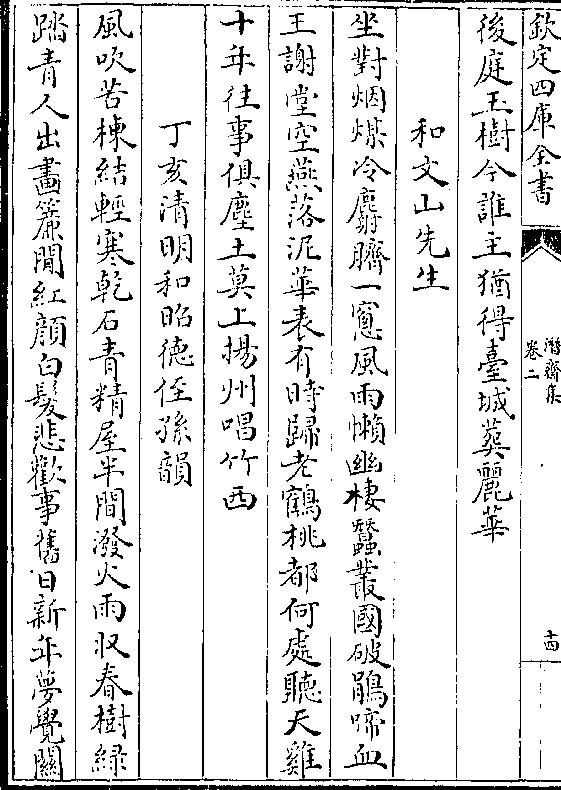 欽定四庫全書
潛齋集
卷二
十四
後庭玉樹今誰主猶得臺城葬麗華
和文山先生
坐對烟煤冷麝臍一窻風雨懶幽棲蠶叢國破鵑啼血
王謝堂空燕落泥華表有時歸老鶴桃都何處聽天雞
十年往事俱塵土莫上揚州唱竹西
丁亥清明和昭德侄孫韻
風吹苦楝結輕寒乾石青精屋半間潑火雨收春樹緑
踏青人出畫簾閒紅顔白髮悲歡事舊日新年夢覺關